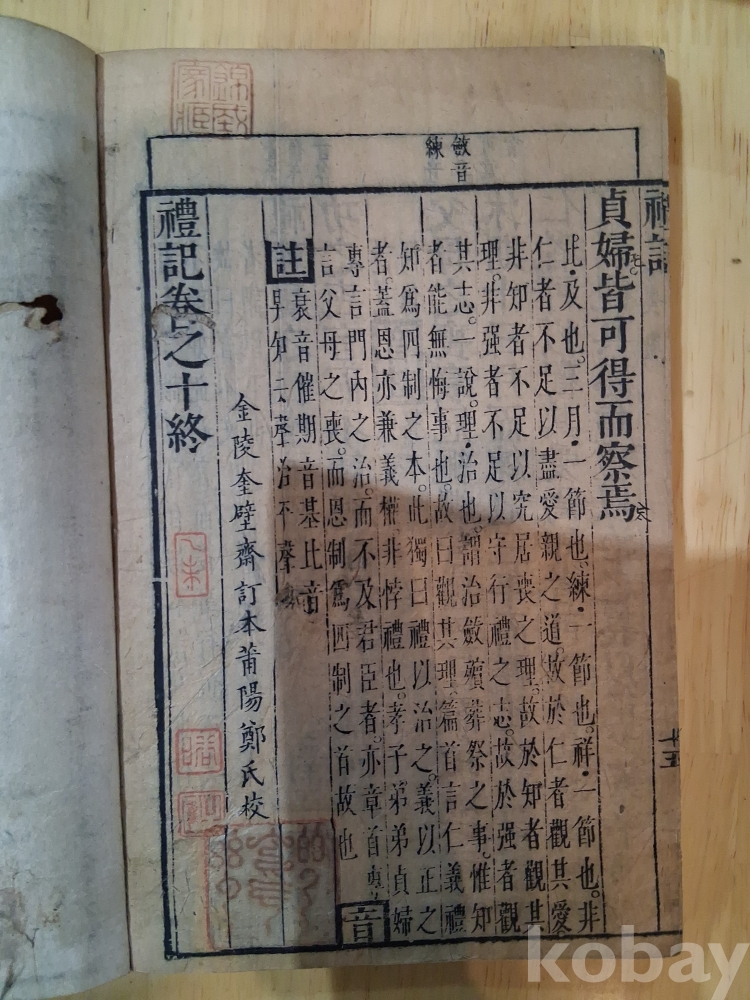 禮記
十五
斂音
練
貞婦皆可得而察焉
比·及也。三月·一節也。練·一節也。祥·一節也。非
仁者不足以盡愛親之道。故於仁者觀其愛
非知者不足以究居喪之理。故於知者觀其
理。非强者不足以守行禮之志。故於强者觀
其志。一說。理·治也。謂治斂殯葬祭之事。惟知
者能無悔事也。故曰觀其理。篇首言仁義禮
知爲四制之本。此獨曰禮以治之。義以正之
者。蓋恩亦兼義。權非悖禮也。孝子弟弟貞婦
專言門內之治。而不及君臣者。亦章首專
言父母之喪。而恩制爲四制之首故也 音
註 衰音催期音基比音
畀知去聲治平聲
金陵奎壁齋訂本莆陽鄭氏校
禮記卷之十終
kobay